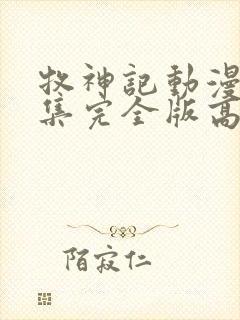 牧神記動漫
集完全版高
陌寂仁